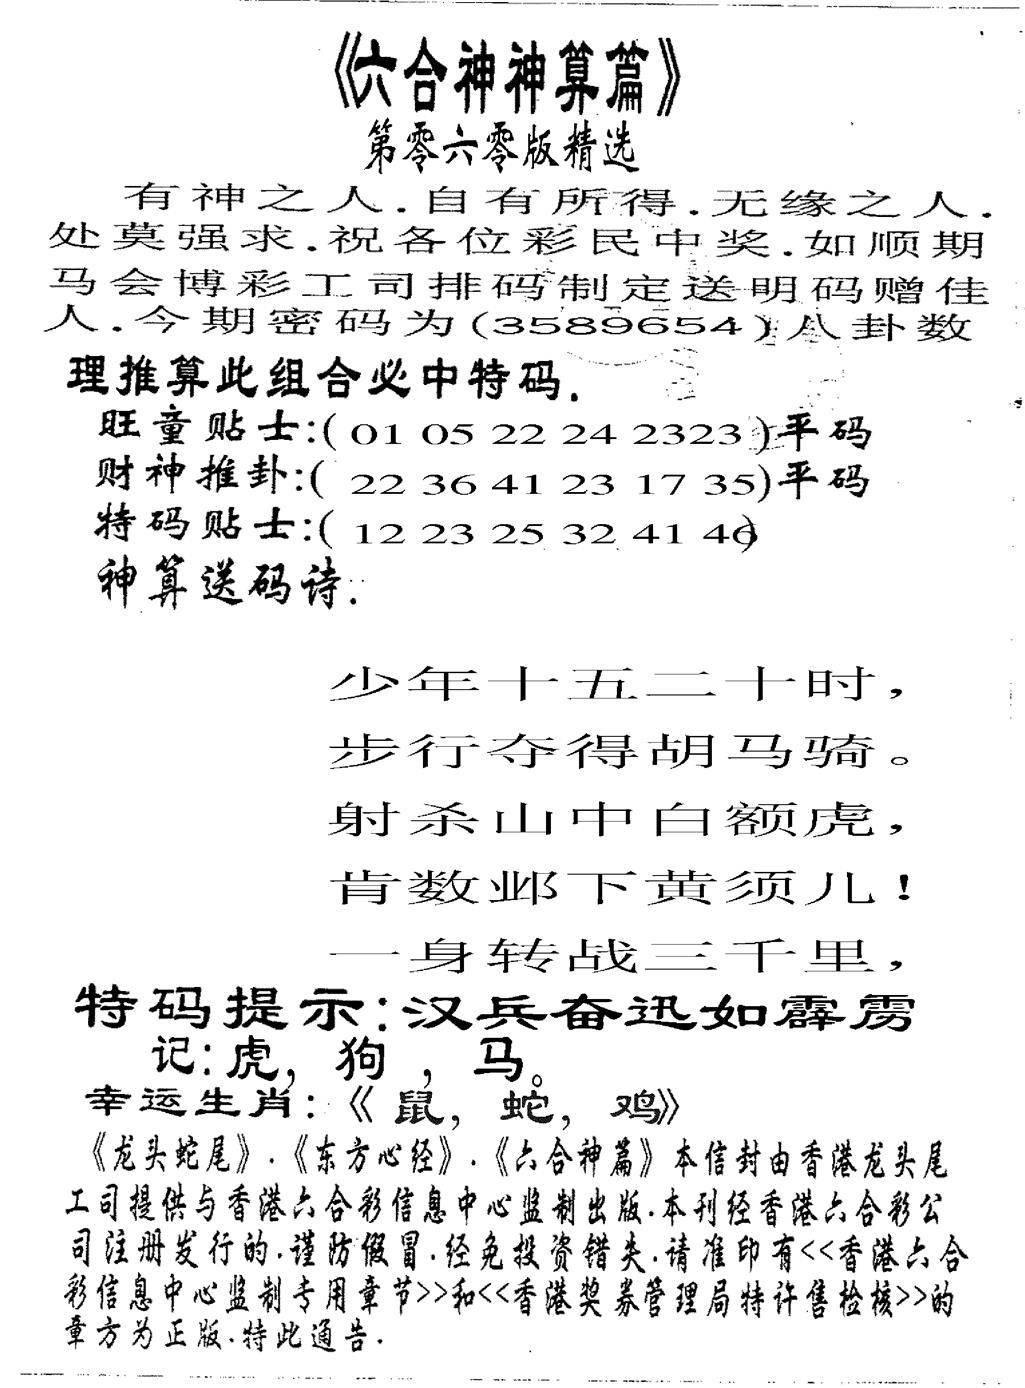 《六合神神算篇》
第零六零版精选
有神之人.自有所得.无缘之人.
处莫强求.祝各位彩民中奖.如顺期
马会博彩工司排码制定送明码赠佳
人.今期密码为(3589654)八卦数
理推算此组合必中特码.
旺童贴士:( 01 05 22 24 2323 )平码
财神推卦:( 22 36 41 23 17 35)平码
特码贴士:( 12 23 25 32 41 46)
神算送码诗.
少年十五二十时，
步行夺得胡马骑。
射杀山中白额虎，
肯数邺下黄须儿！
一身转战三千里，
特码提示:汉兵奋迅如霹雳
记:虎，狗，马。
幸运生肖:《鼠，蛇，鸡》
《龙头蛇尾》.《东方心经》.《六合神篇》本信封由香港龙头尾
工司提供与香港六合彩信息中心监制出版.本刊经香港六合彩公
司注册发行的.谨防假冒.经免投资错失.请准印有<<香港六合
彩信息中心监制专用章节>>和<<香港奖券管理局特许售检核>>的
章方为正版.特此通告.